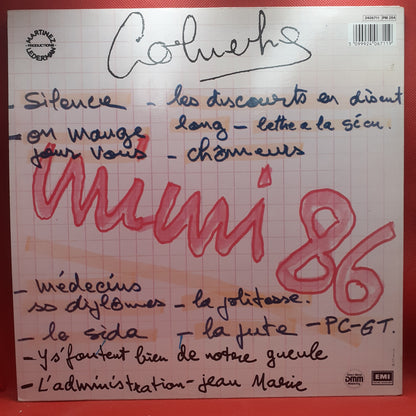 MARTINEZ
PRODUCTIONS
LEDERMAN
Coluche
2406711 PM 254
5 099924 067119
- Silence - les discourts en disent
- on mange long - lettre a la sécu.
pour vous - chômeurs
mimi 86
- médecins
ss diplômes - la politesse.
- le sida - la jute - PC-GT.
- y s'foutent bien de notre gueule
- L'administration - jean Marie
DMM
EMI